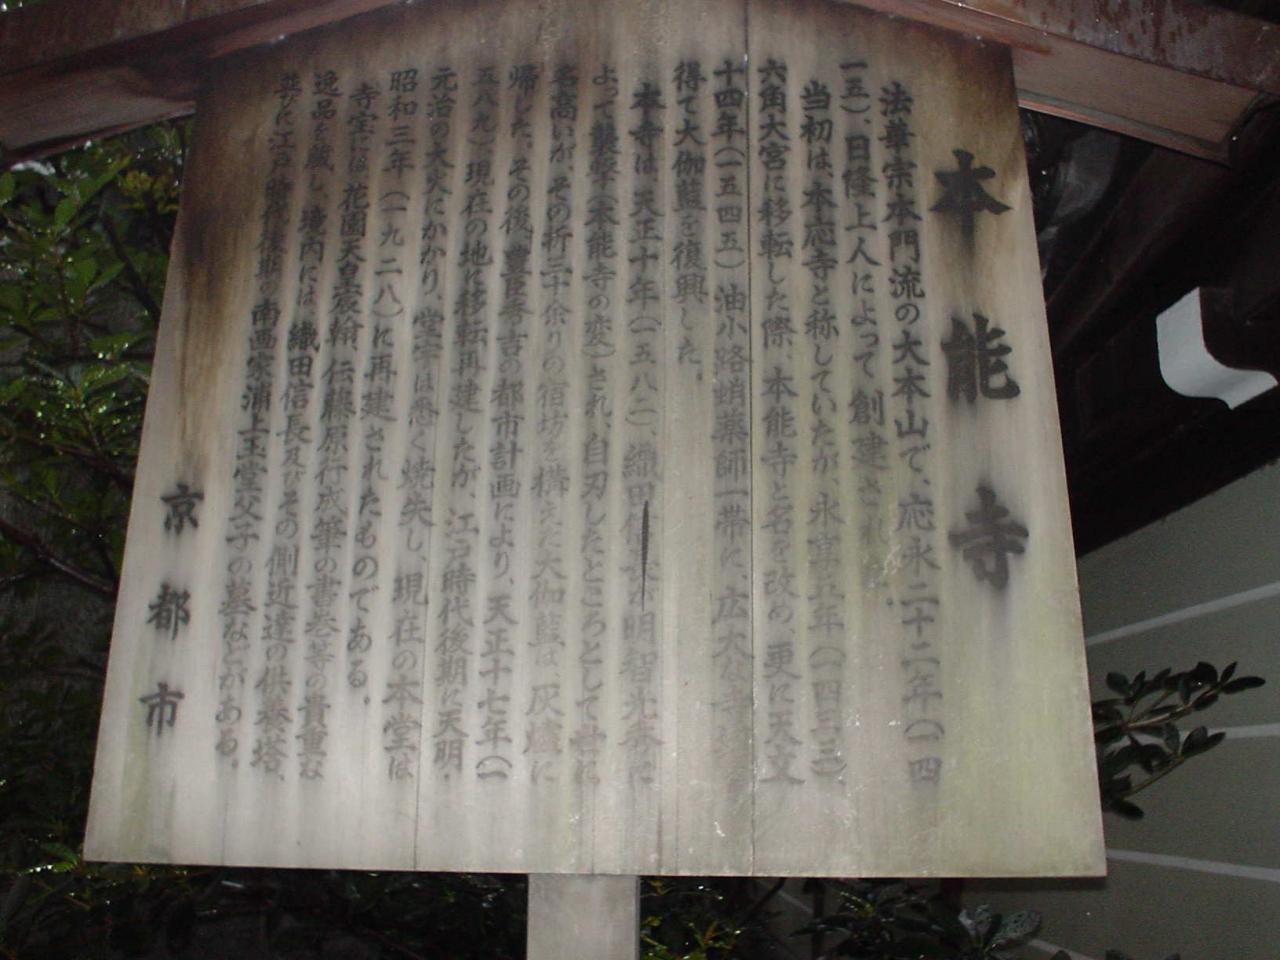 本能寺
法華宗本門流の大本山で、応永二十二年(一四
一五)、日隆上人によって創建され、
当初は、本応寺と称していたが、永享五年(一四三三)
六角大宮に移転した際、本能寺と名を改め、更に天文
十四年(一五四五)油小路蛸薬師一帯に、広大な寺域を
得て大伽藍を復興した。
本寺は天正十年(一五八二)、織田信長が明智光秀に
よって襲撃(本能寺の変)され、自刃したところとして世に
名高いが、その折三十余りの宿坊を構えた大伽藍は、灰燼に
帰した。その後、豊臣秀吉の都市計画により、天正十七年(一
五八九)現在の地に移転再建したが、江戸時代後期に天明・
元治の大火にかかり、堂宇は悉く焼失し、現在の本堂は
昭和三年(一九二八)に再建されたものである。
寺宝には、花園天皇宸翰、伝藤原行成筆の書巻等の貴重な
逸品を蔵し、境内には、織田信長及びその側近達の供養塔、
並びに江戸時代後期の南画家浦上玉堂父子の墓などがある。
京都市